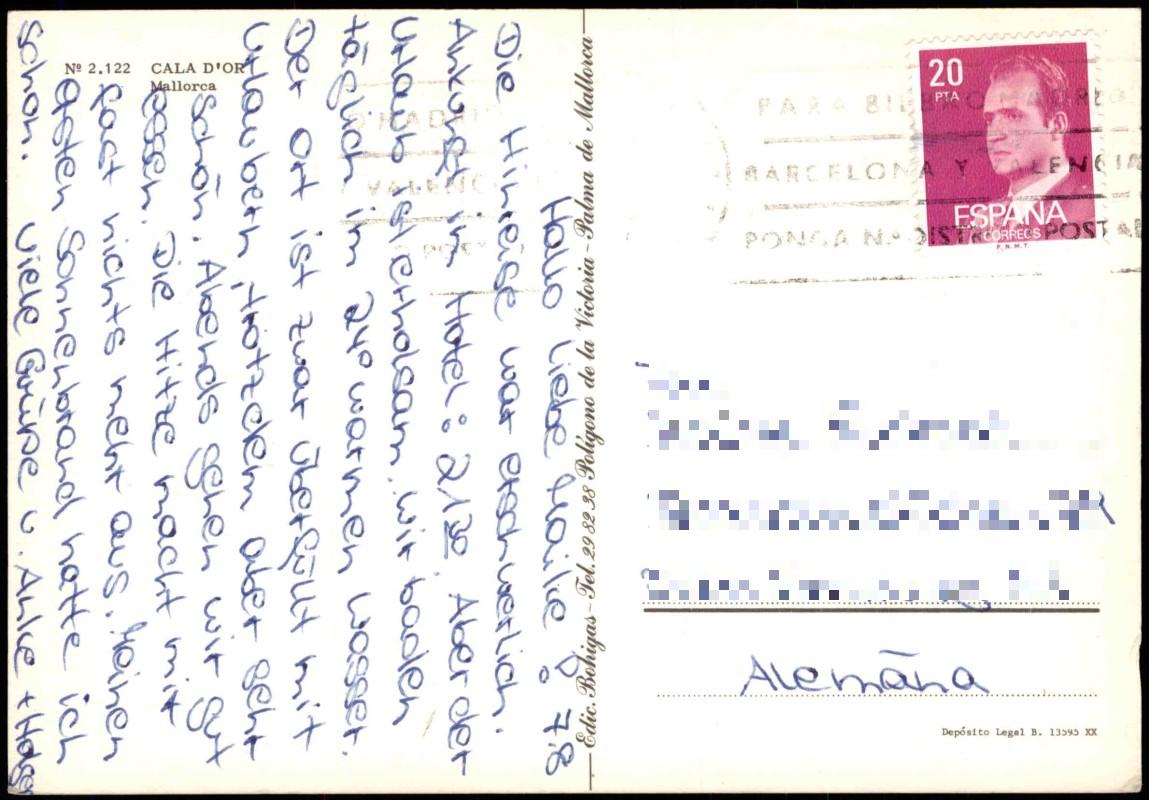 Nº 2.122 CALA D'OR
Mallorca
Hallo liebe Maike! 7.8
Die Hinreise war erschwerlich.
Ankunft im Hotel: 21.30. Aber der
Urlaub ist erholsam. Wir baden
täglich im 24° warmen Wasser.
Der Ort ist zwar überfüllt mit
Urlaubern, trotzdem aber sehr
schön. Abends gehen wir gut
essen. Die Hitze macht mir
fast nichts mehr aus. Meinen
ersten Sonnenbrand hatte ich
schon. Viele Grüße v. Anke + Holger
Edic. Bohigas - Tel. 29 82 38 Polígono de la Victoria - Palma de Mallorca
20
PTA
ESPAÑA
CORREOS
F.N.M.T.
PARA MADRID
BARCELONA Y VALENCIA
PONGA Nº DISTRITO POSTAL
MADRID
VALENC
POST
Alemāna
Depósito Legal B. 13595 XX